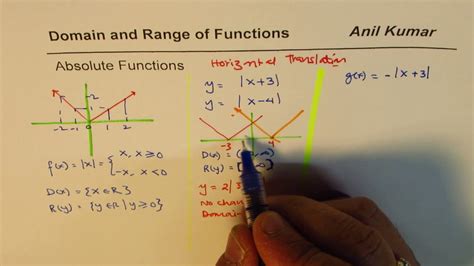 Domain and Range of Functions
Anil Kumar
Absolute Functions
2
1
-2 -1 0 1 2
f(x) = |x| = { x, x ≥ 0
-x, x < 0
D(x) = {x ∈ R}
R(y) = {y ∈ R | y ≥ 0}
Horizontal Translation
y = |x+3|
y = |x-4|
-3
4
D(x) =
R(y) = [
y = 2|
no chan
Domain
g(x) = -|x+3|